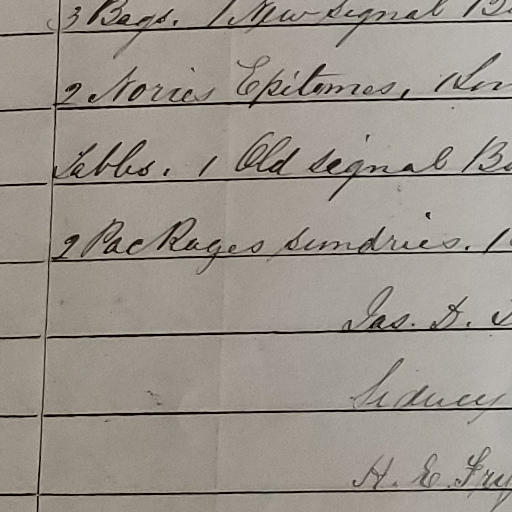 3 Bags. 1 New Signal
2 Nories Epitomes,
Tables. 1 Old Signal
2 Packages Sundries. 1
Jas. A.
Sidney
H. E. Fry